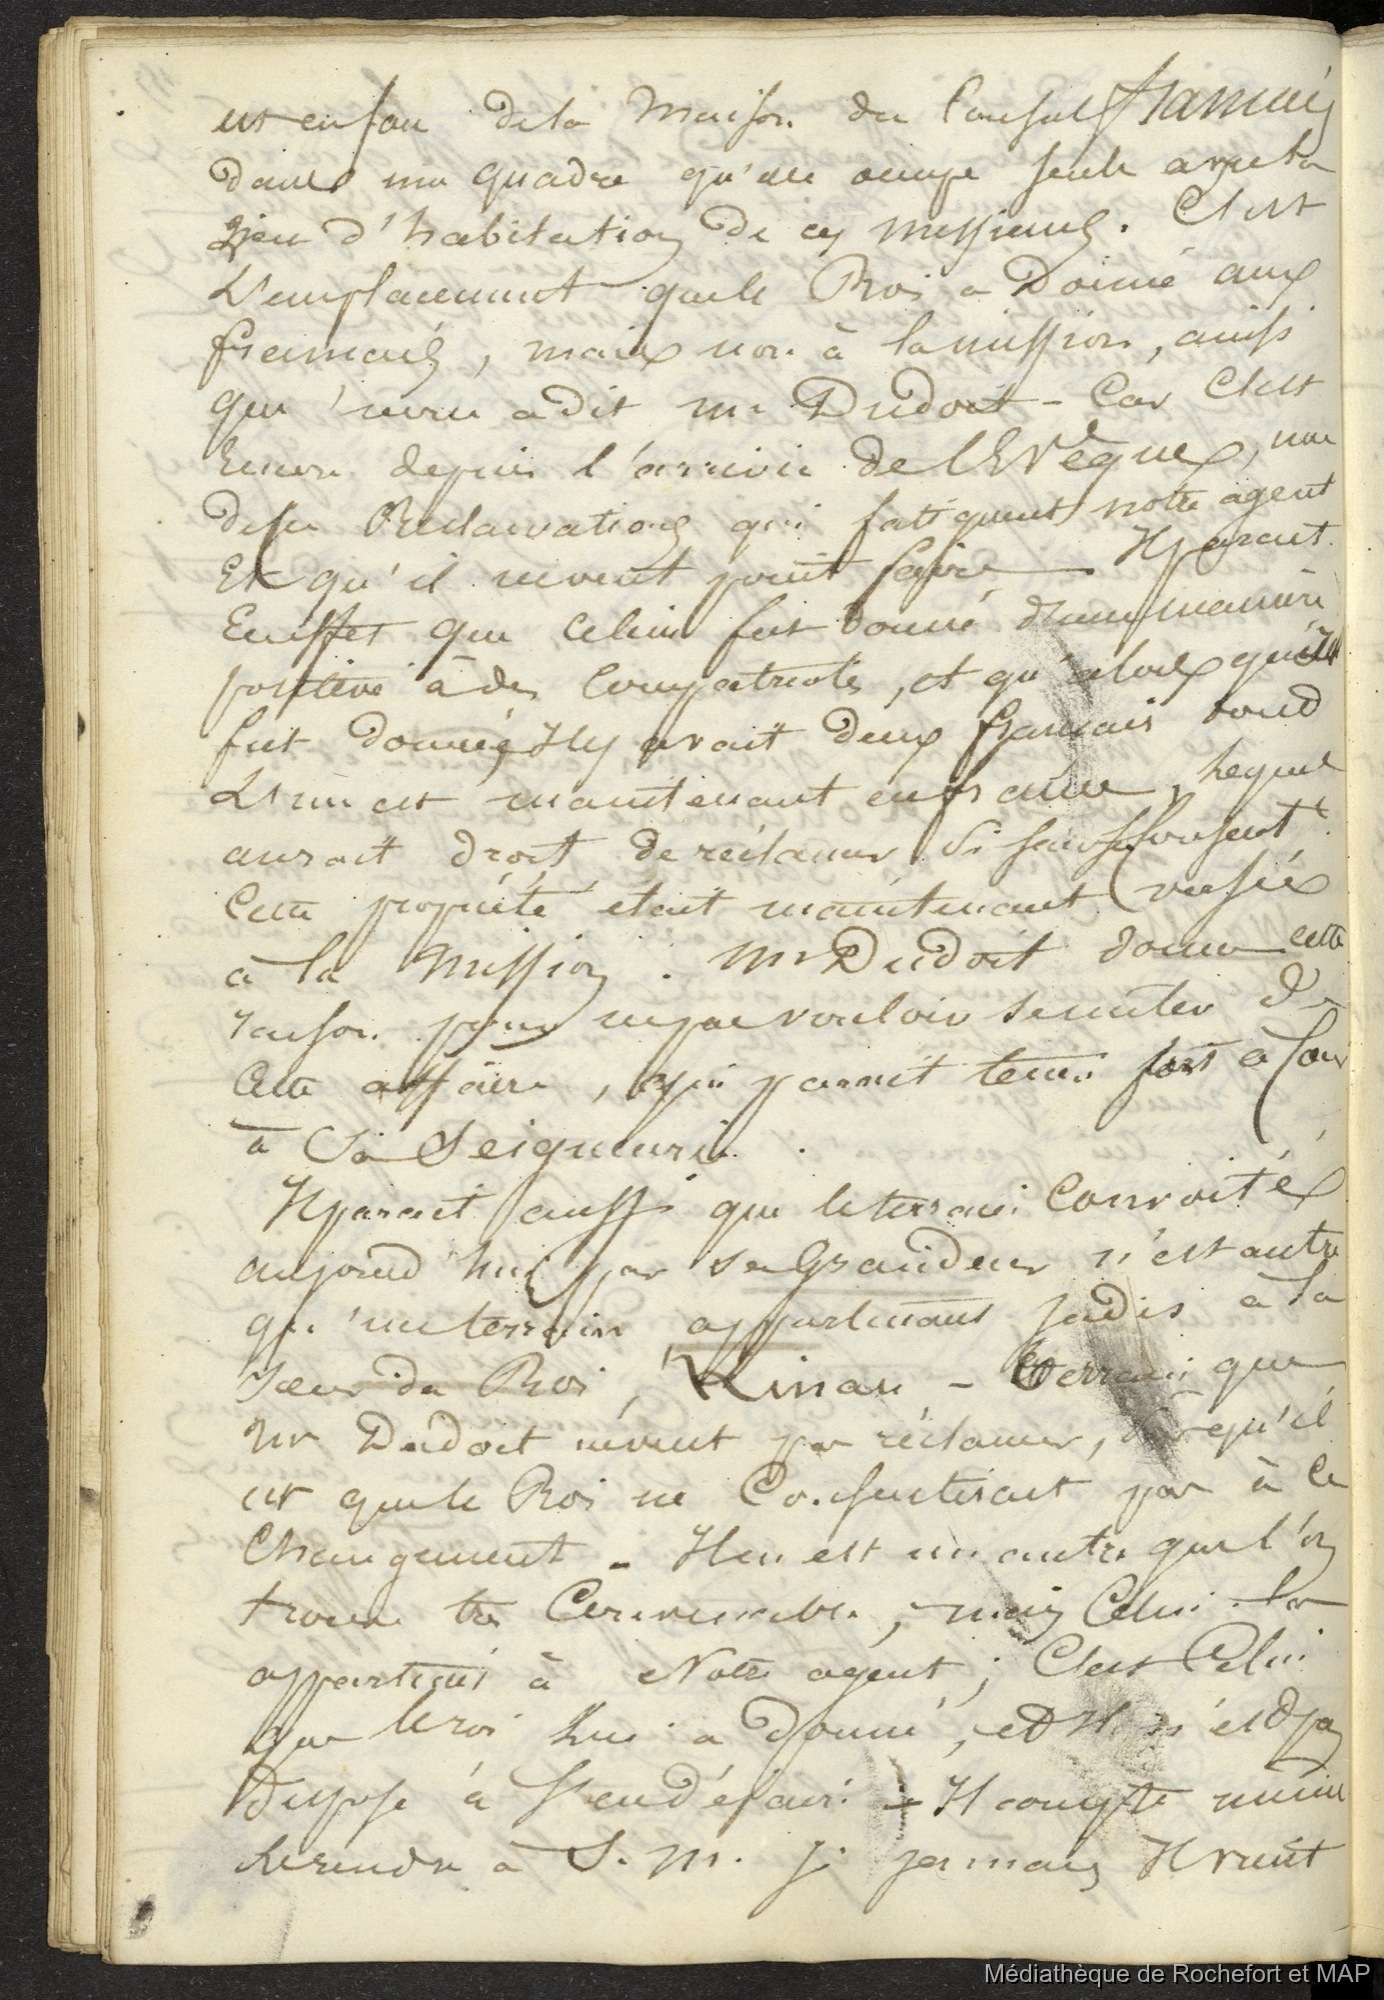 est en face de la Maison du Consul français
dans un quadre qu'elle occupe seule avec le
lieu d'habitation de ces messieurs. C'est
L'emplacement que le Roi a Donné aux
français, mais non à la mission, ainsi
que me l'a dit mr Dudoit - Car C'est
Encore depuis l'arrivée de l'Evêque, une
des Réclamations qui fatiguent notre agent
Et qu'il ne veut point faire. Il parait
En effet que Celui fut donné d'une manière
positive à des Compatriotes, et qu'alors qu'il
fut donné, Il y avait deux français dont
L'un est maintenant en france, Lequel
aurait droit de réclamer Si
Cette propriété était maintenant versée
à la Mission. Mr Dudoit donne cette
raison pour ne pas vouloir se mêler de
Cette affaire, qui parait tenir fort à Cœur
à Sa Seigneurie.
Il parait aussi que le terrain Convoité
aujourd'hui par sa Grandeur n'est autre
qu'un terrain appartenant jadis à la
sœur du Roi, Kinau - terrain que
Mr Dudoit ne veut pas réclamer, qu'il
est que le Roi ne Consentirait pas à Ce
Changement - Il en est un autre que l'on
trouve très Convenable, mais Celui-là
appartient à Notre agent; C'est Celui
que le roi Lui a donné, et Il n'est pas
Disposé à S'en défaire - Il compte même
Le rendre à S. M. Si jamais Il vient
Médiathèque de Rochefort et MAP